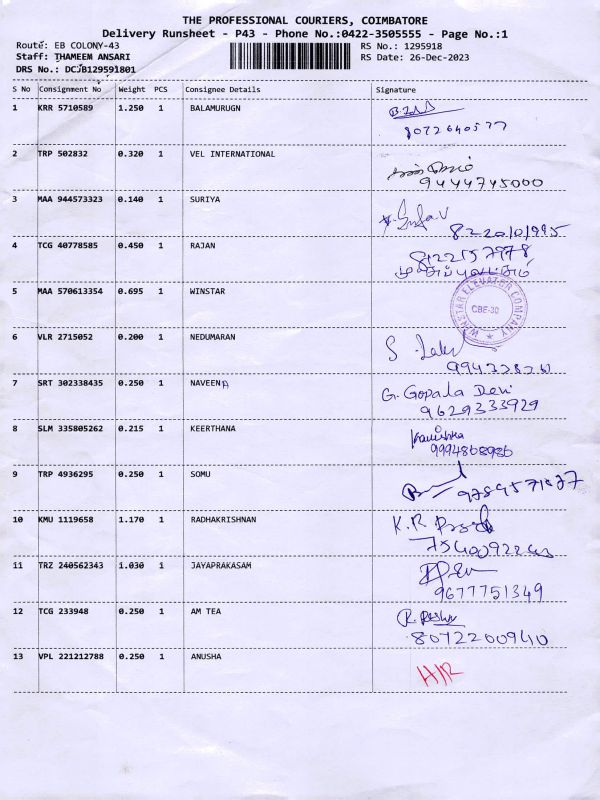 THE PROFESSIONAL COURIERS, COIMBATORE
Delivery Runsheet - P43 - Phone No.:0422-3505555 - Page No.:1
Route: EB COLONY-43 RS No.: 1295918
Staff: THAMEEM ANSARI RS Date: 26-Dec-2023
DRS No.: DCJB129591801
S No Consignment No Weight PCS Consignee Details Signature
1 KRR 5710589 1.250 1 BALAMURUGN
8072640577
2 TRP 502832 0.320 1 VEL INTERNATIONAL
9444745000
3 MAA 944573323 0.140 1 SURIYA
8220101995
4 TCG 40778585 0.450 1 RAJAN 8122157978
5 MAA 570613354 0.695 1 WINSTAR
WINSTAR ELEVATOR COMPANY
CBE-30
6 VLR 2715052 0.200 1 NEDUMARAN
S.
7 SRT 302338435 0.250 1 NAVEEN
G. Gopala Devi
9629333929
8 SLM 335805262 0.215 1 KEERTHANA
9994868986
9 TRP 4936295 0.250 1 SOMU
10 KMU 1119658 1.170 1 RADHAKRISHNAN
K.R
11 TRZ 240562343 1.030 1 JAYAPRAKASAM
9677751349
12 TCG 233948 0.250 1 AM TEA
8072200940
13 VPL 221212788 0.250 1 ANUSHA
H/R